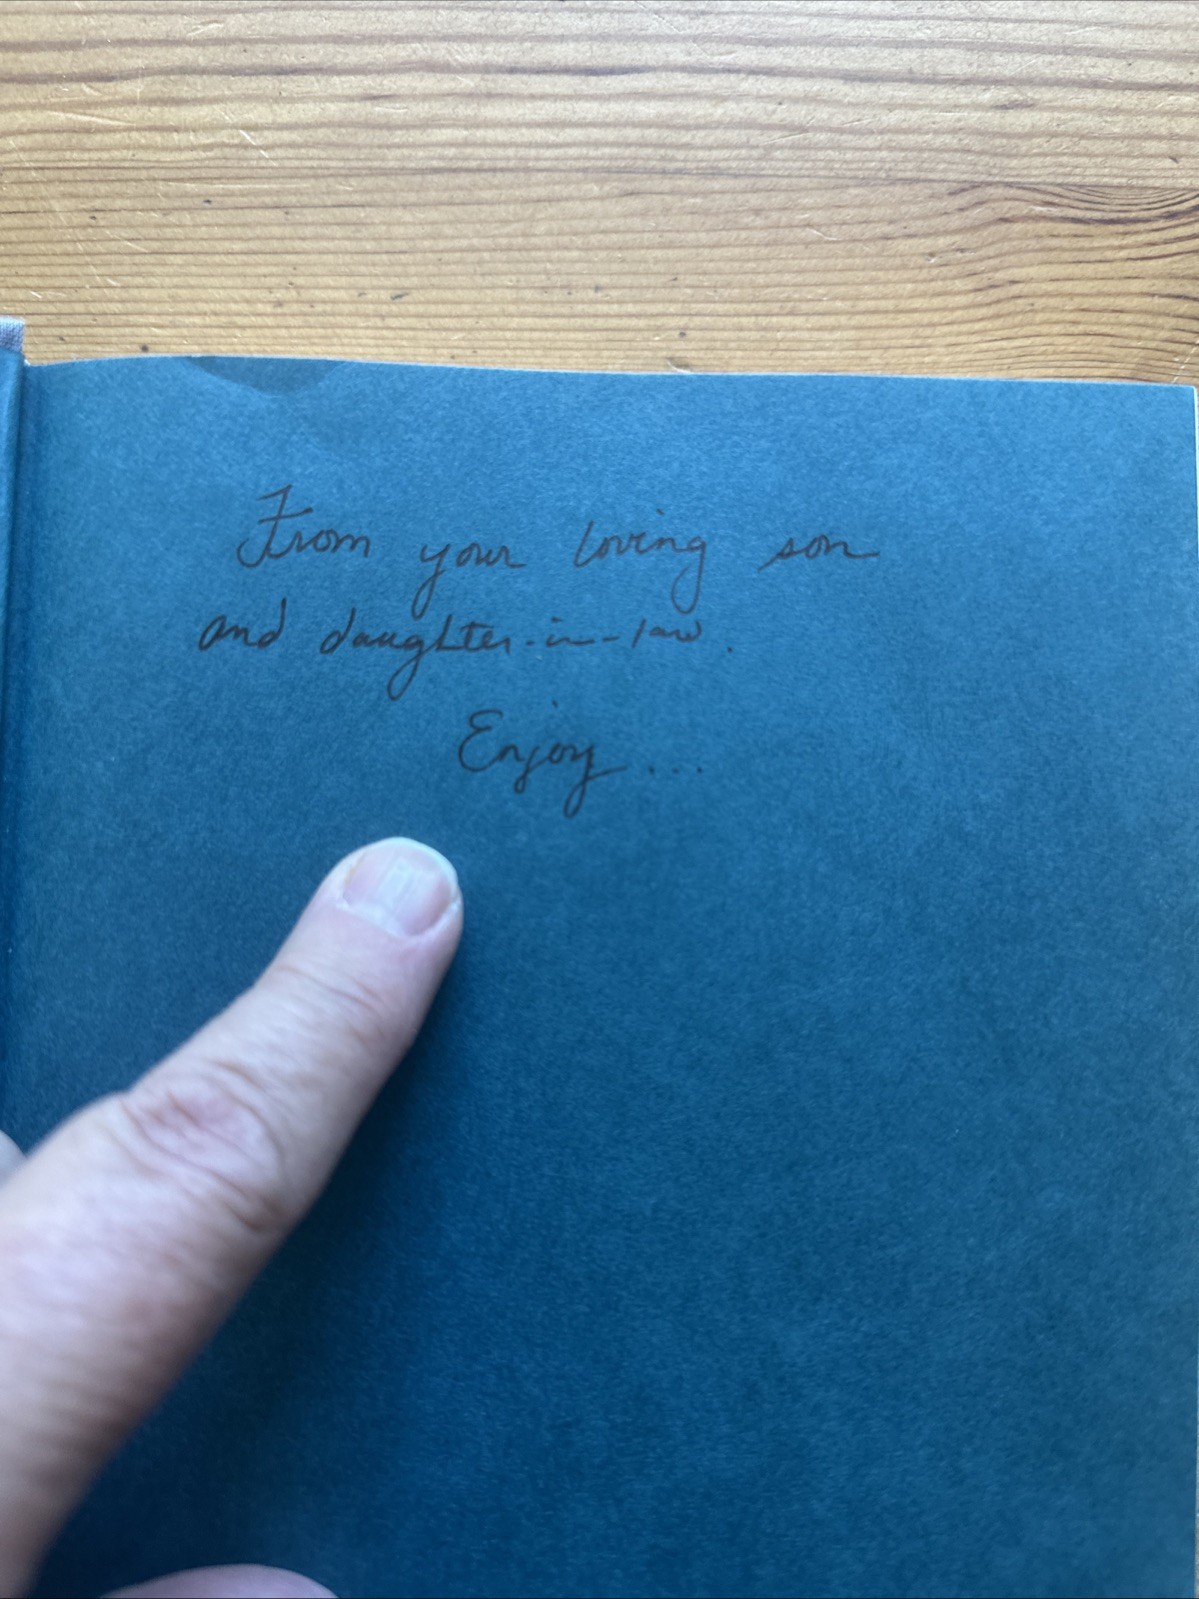 From your loving son
and daughter-in-law.
Enjoy...